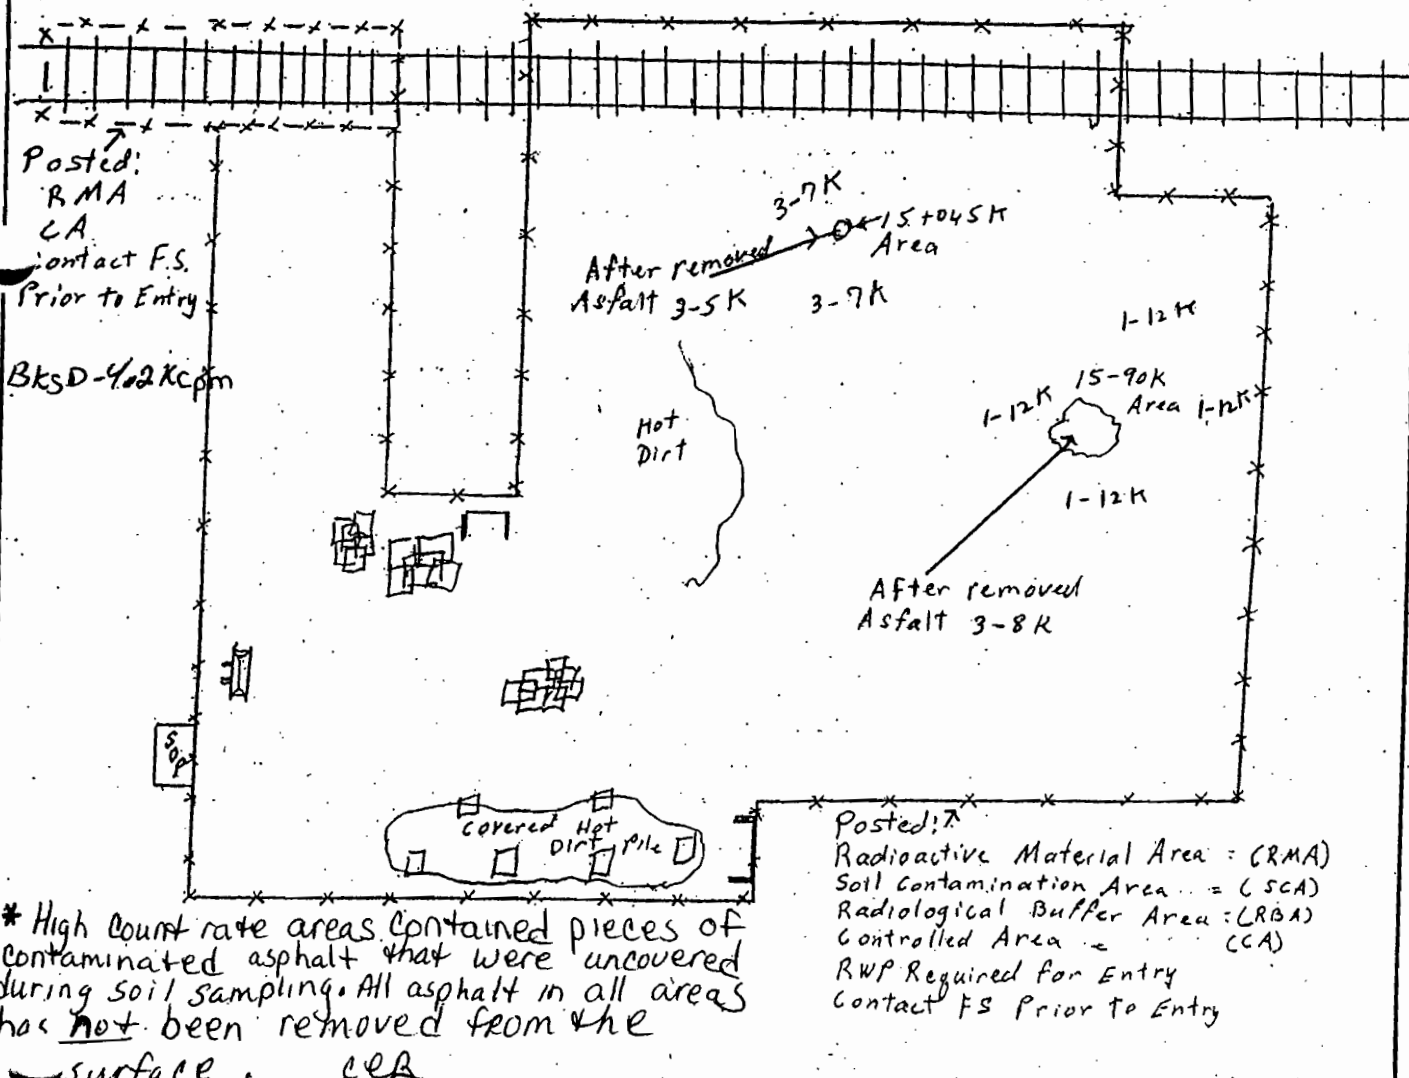 Posted:
RMA
CA
Contact F.S.
Prior to Entry
3-7K
15+045K
Area
After removed
Asfalt 3-5K
3-7K
1-12K
15-90K
Area
1-12K
1-12K
Hot
Dirt
1-12K
After removed
Asfalt 3-8K
SOP
Covered Hot
Dirt Pile
Posted:
Radioactive Material Area = (RMA)
Soil Contamination Area = (SCA)
Radiological Buffer Area : (RBA)
Controlled Area = (CA)
RWP Required for Entry
Contact FS Prior to Entry
* High count rate areas contained pieces of
contaminated asphalt that were uncovered
during soil sampling. All asphalt in all areas
has not been removed from the
surface.